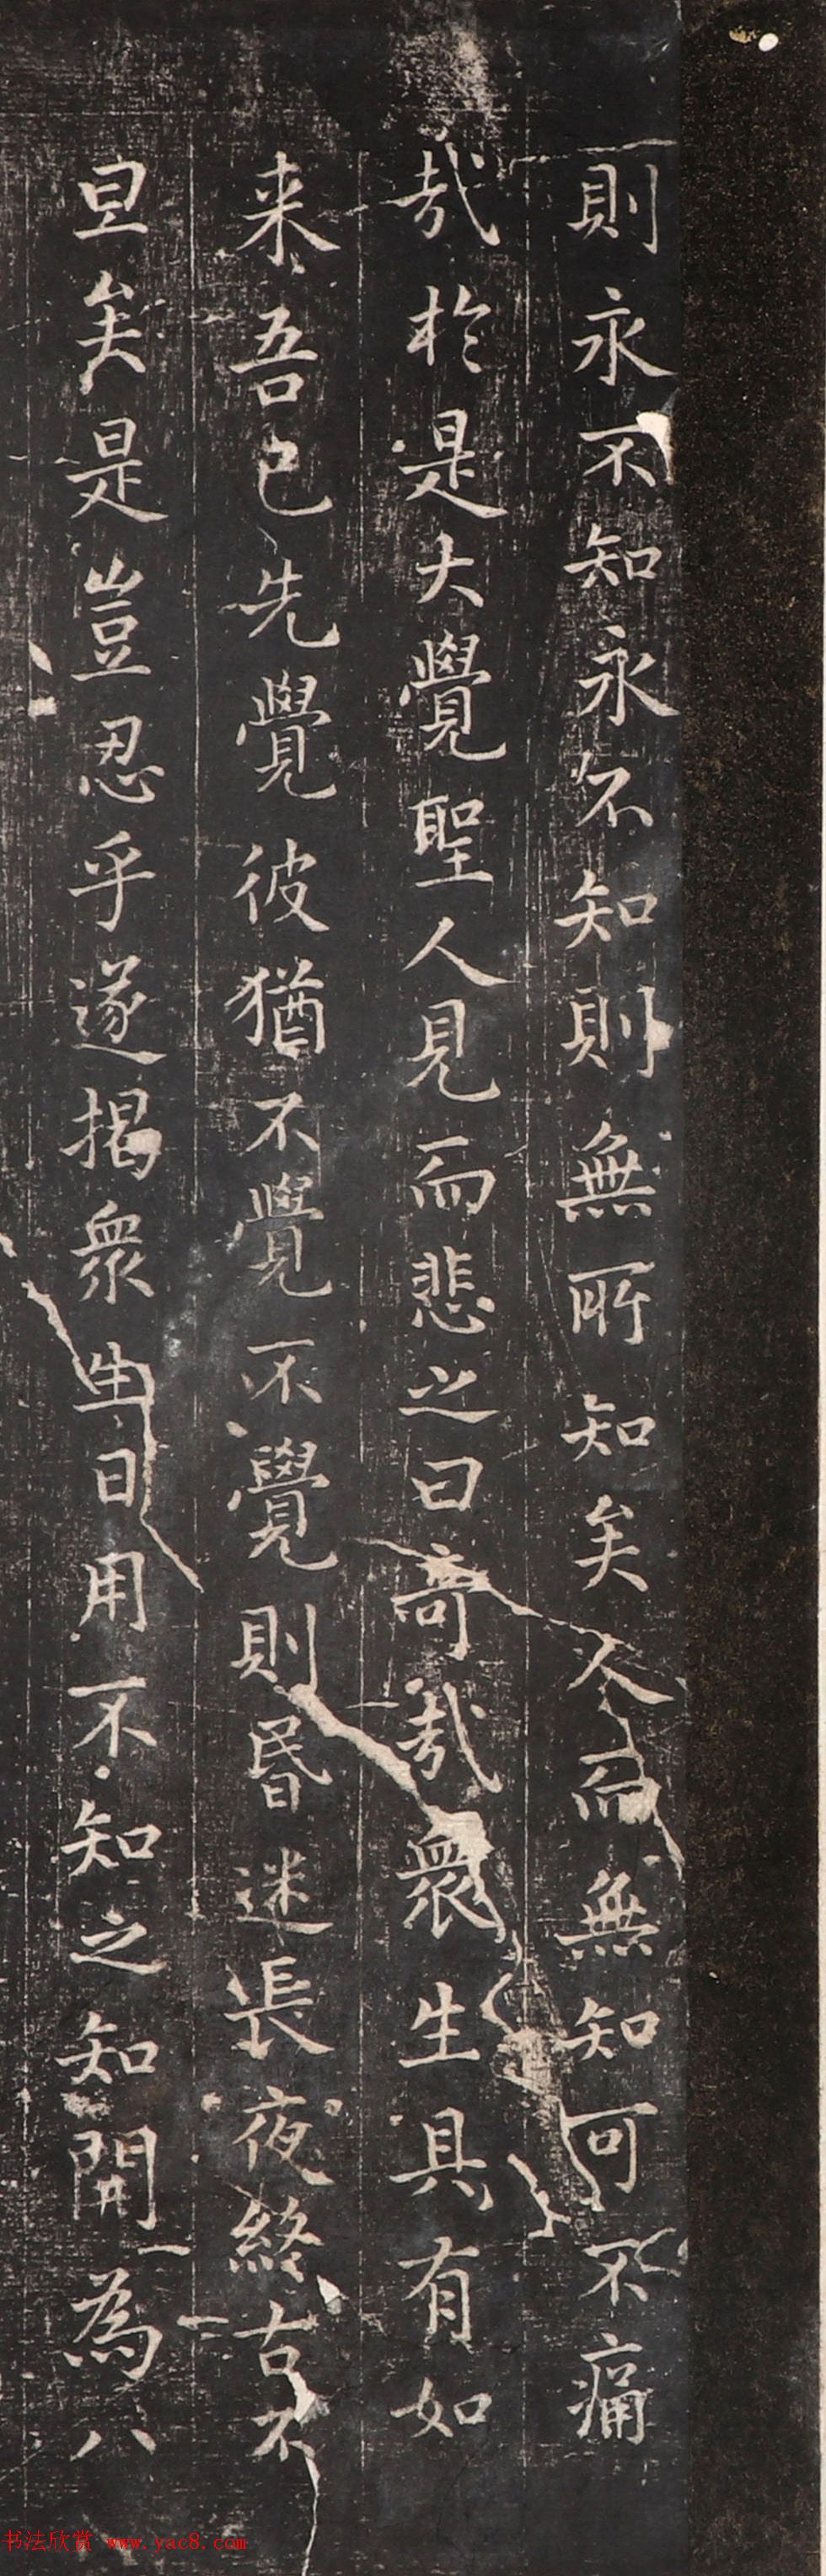 則永不知永不知則無所知矣人而無知可不痛
哉於是大覺聖人見而悲之曰奇哉衆生具有如
来吾已先覺彼猶不覺不覺則昏迷長夜終古不
旦矣是豈忍乎遂揭衆生日用不知之知開為八
书法欣赏 www.yac8.com